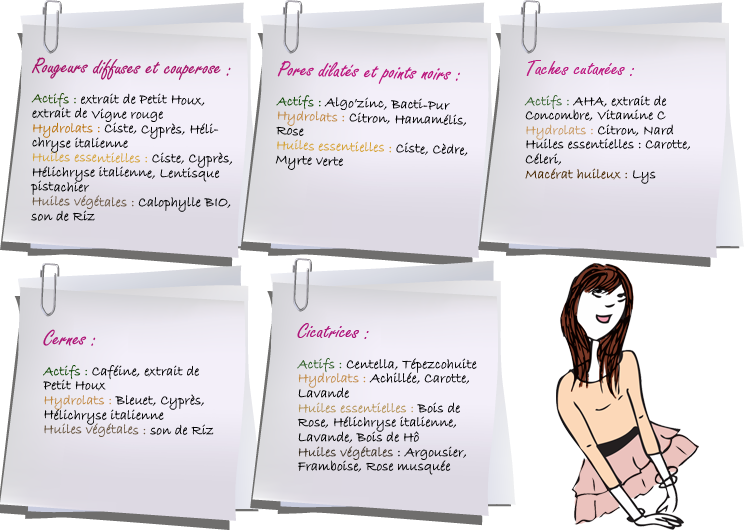 Rougeurs diffuses et couperose :
Actifs : extrait de Petit Houx,
extrait de Vigne rouge
Hydrolats : Ciste, Cyprès, Héli-
chryse italienne
Huiles essentielles : Ciste, Cyprès,
Hélichryse italienne, Lentisque
pistachier
Huiles végétales : Calophylle BIO,
son de Riz
Pores dilatés et points noirs :
Actifs : Algo'zinc, Bacti-Pur
Hydrolats : Citron, Hamamélis,
Rose
Huiles essentielles : Ciste, Cèdre,
Myrte verte
Taches cutanées :
Actifs : AHA, extrait de
Concombre, Vitamine C
Hydrolats : Citron, Nard
Huiles essentielles : Carotte,
Céleri,
Macérat huileux : Lys
Cernes :
Actifs : Caféine, extrait de
Petit Houx
Hydrolats : Bleuet, Cyprès,
Hélichryse italienne
Huiles végétales : son de Riz
Cicatrices :
Actifs : Centella, Tépezcohuite
Hydrolats : Achillée, Carotte,
Lavande
Huiles essentielles : Bois de
Rose, Hélichryse italienne,
Lavande, Bois de Hô
Huiles végétales : Argousier,
Framboise, Rose musquée